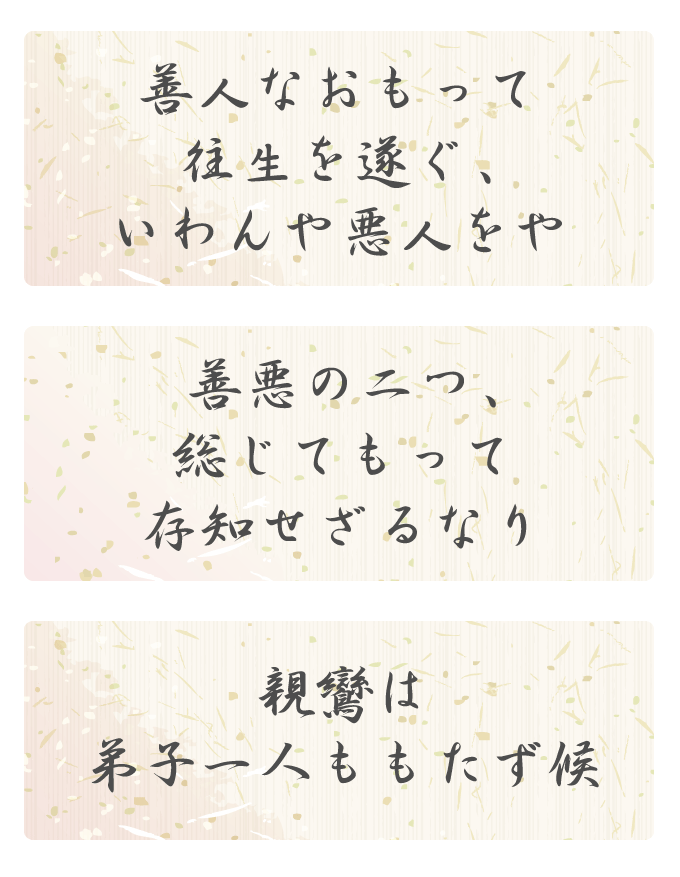 善人なおもって
往生を遂ぐ、
いわんや悪人をや
善悪の二つ、
総じてもって
存知せざるなり
親鸞は
弟子一人ももたず候